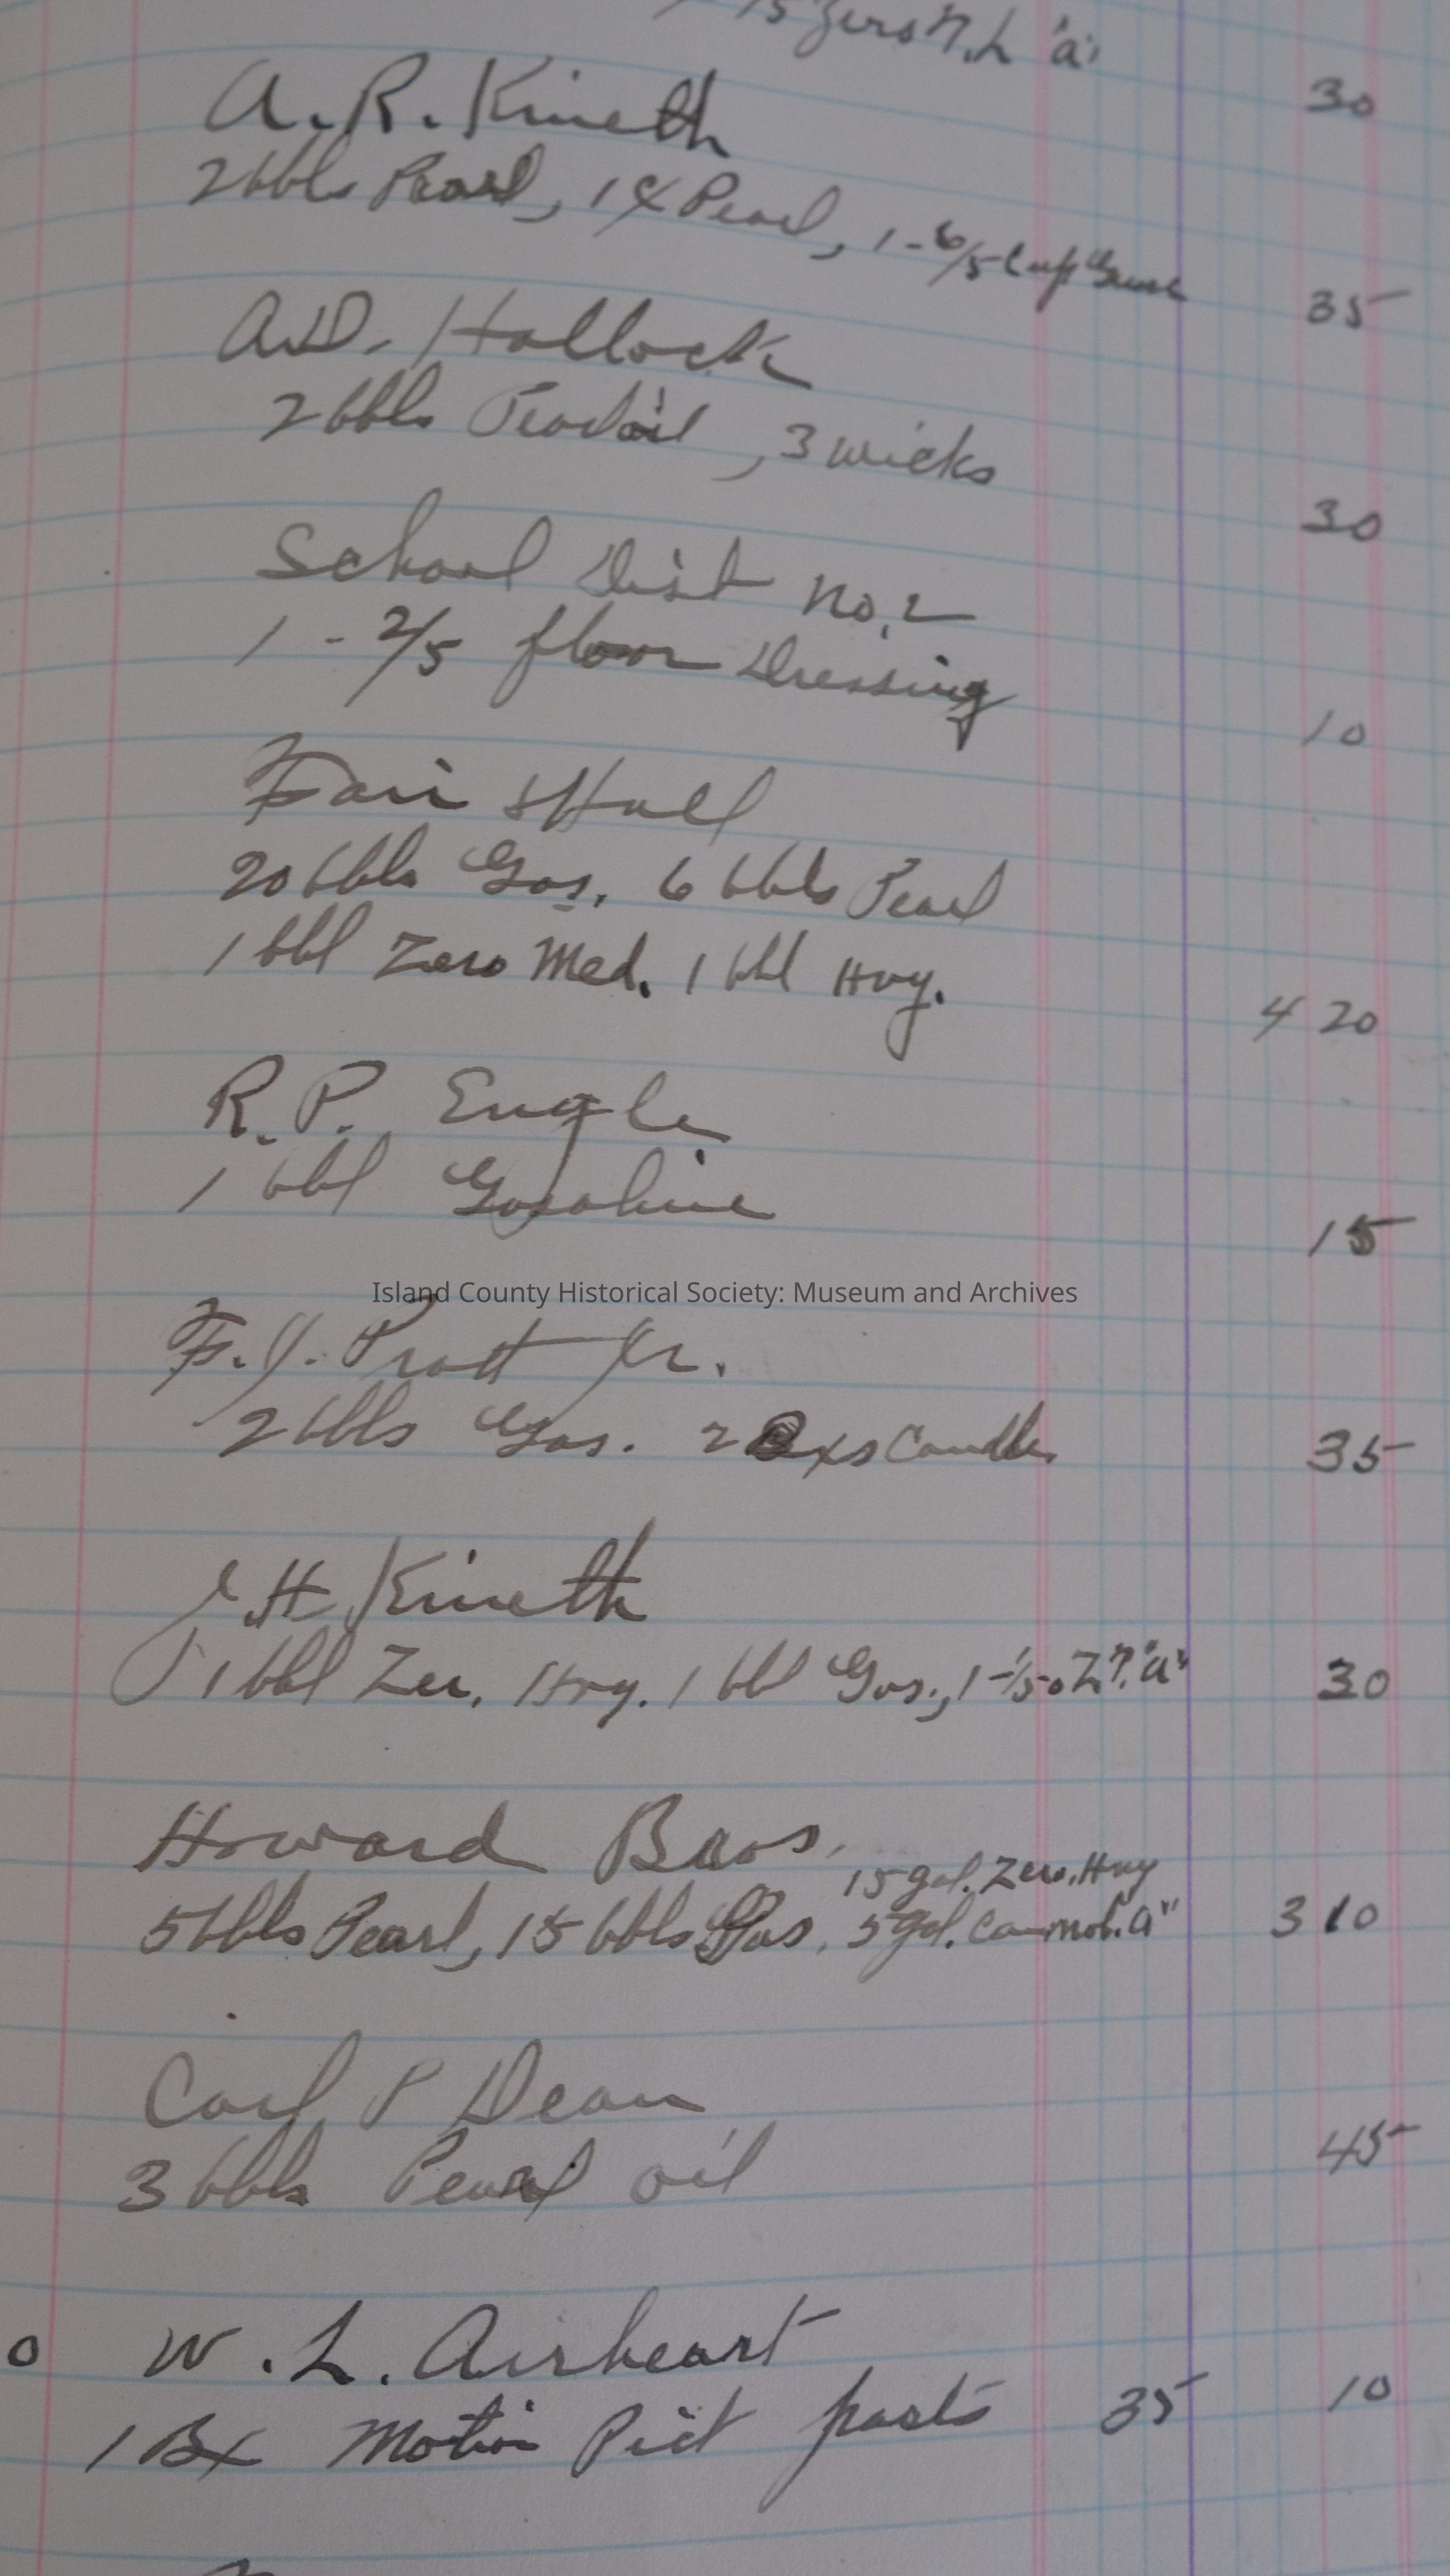 15 Zero N.L "a"
30
A. R. Kineth
2 bbls Pearl, 1 cx Pearl, 1-6/5 Cup Grease
35
A.D. Hallock
2 bbls Pearl oil, 3 wicks
30
School Dist No. 2
1 - 2/5 floor Dressing
10
Fair Hall
20 bbls Gas, 6 bbls Pearl
1 bbl Zero Med. 1 bbl Hvy.
4 20
R. P. Engle
1 bbl Gasoline
15
Island County Historical Society: Museum and Archives
F. J. Pratt Jr.
2 bbls Gas. 2 Bxs Candles
35
J H Kineth
1 bbl Zer. Hvy. 1 bbl Gas., 1-1/5 "a"
30
Howard Bros.
15 gal. Zero. Hvy
5 bbls Pearl, 15 bbls Gas, 5 gal. mob. a"
3 10
Carl P Dean
3 bbls Pearl oil
45
o W. L. Airheart
1 Bx Motion Pict parts 35 10